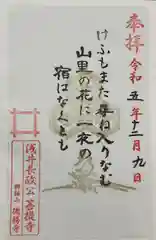 奉拝
令和五年十二月九日
けふもまた尋ね入りなむ
山里の花に一夜の
宿はなくとも
浅井長政公菩提寺
徳勝寺